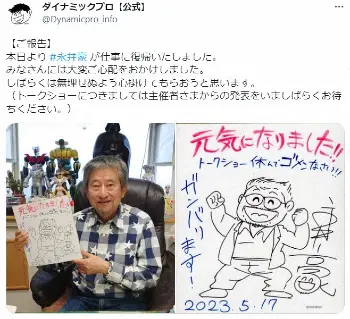 ダイナミックプロ【公式】
@Dynamicpro_info
【ご報告】
本日より #永井豪 が仕事に復帰いたしました。
みなさんには大変ご心配をおかけしました。
しばらくは無理せぬよう心掛けてもらおうと思います。
（トークショーにつきましては主催者さまからの発表をいましばらくお待
ちください。）
元気になりました!!
トークショー休んでゴメンなさい!!
ガンバります!
2023.5.17